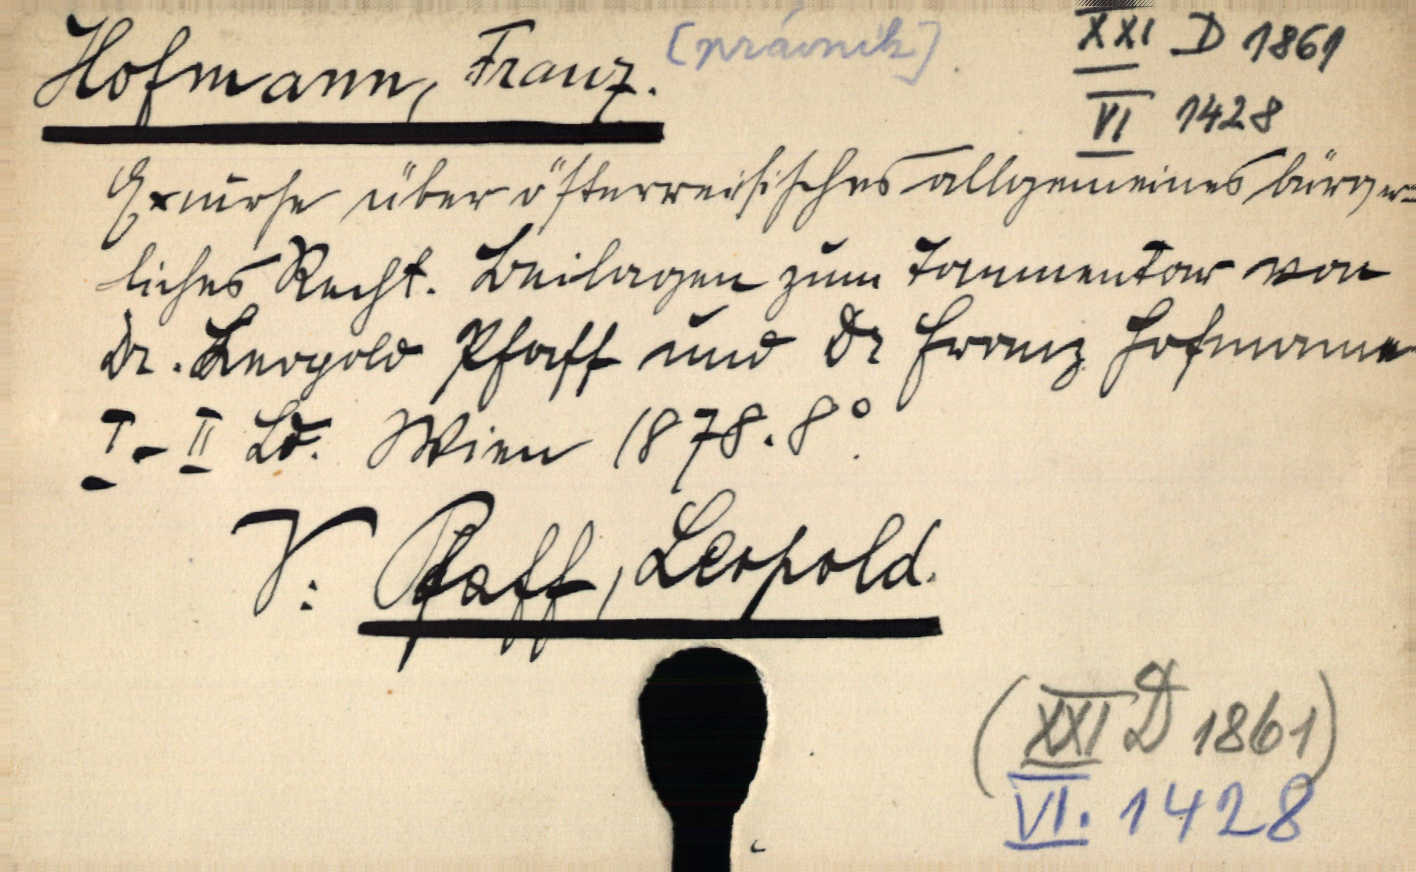 Hofmann, Franz. [právník]
XXI D 1861
VI 1428
Excurse über österreichisches allgemeines bürger=
liches Recht. Beilagen zum Commentar von
Dr. Leopold Pfaff und Dr Franz Hofmann
I - II Bd. Wien 1878. 8°
V: Pfaff, Leopold.
(XXI D 1861)
VI. 1428